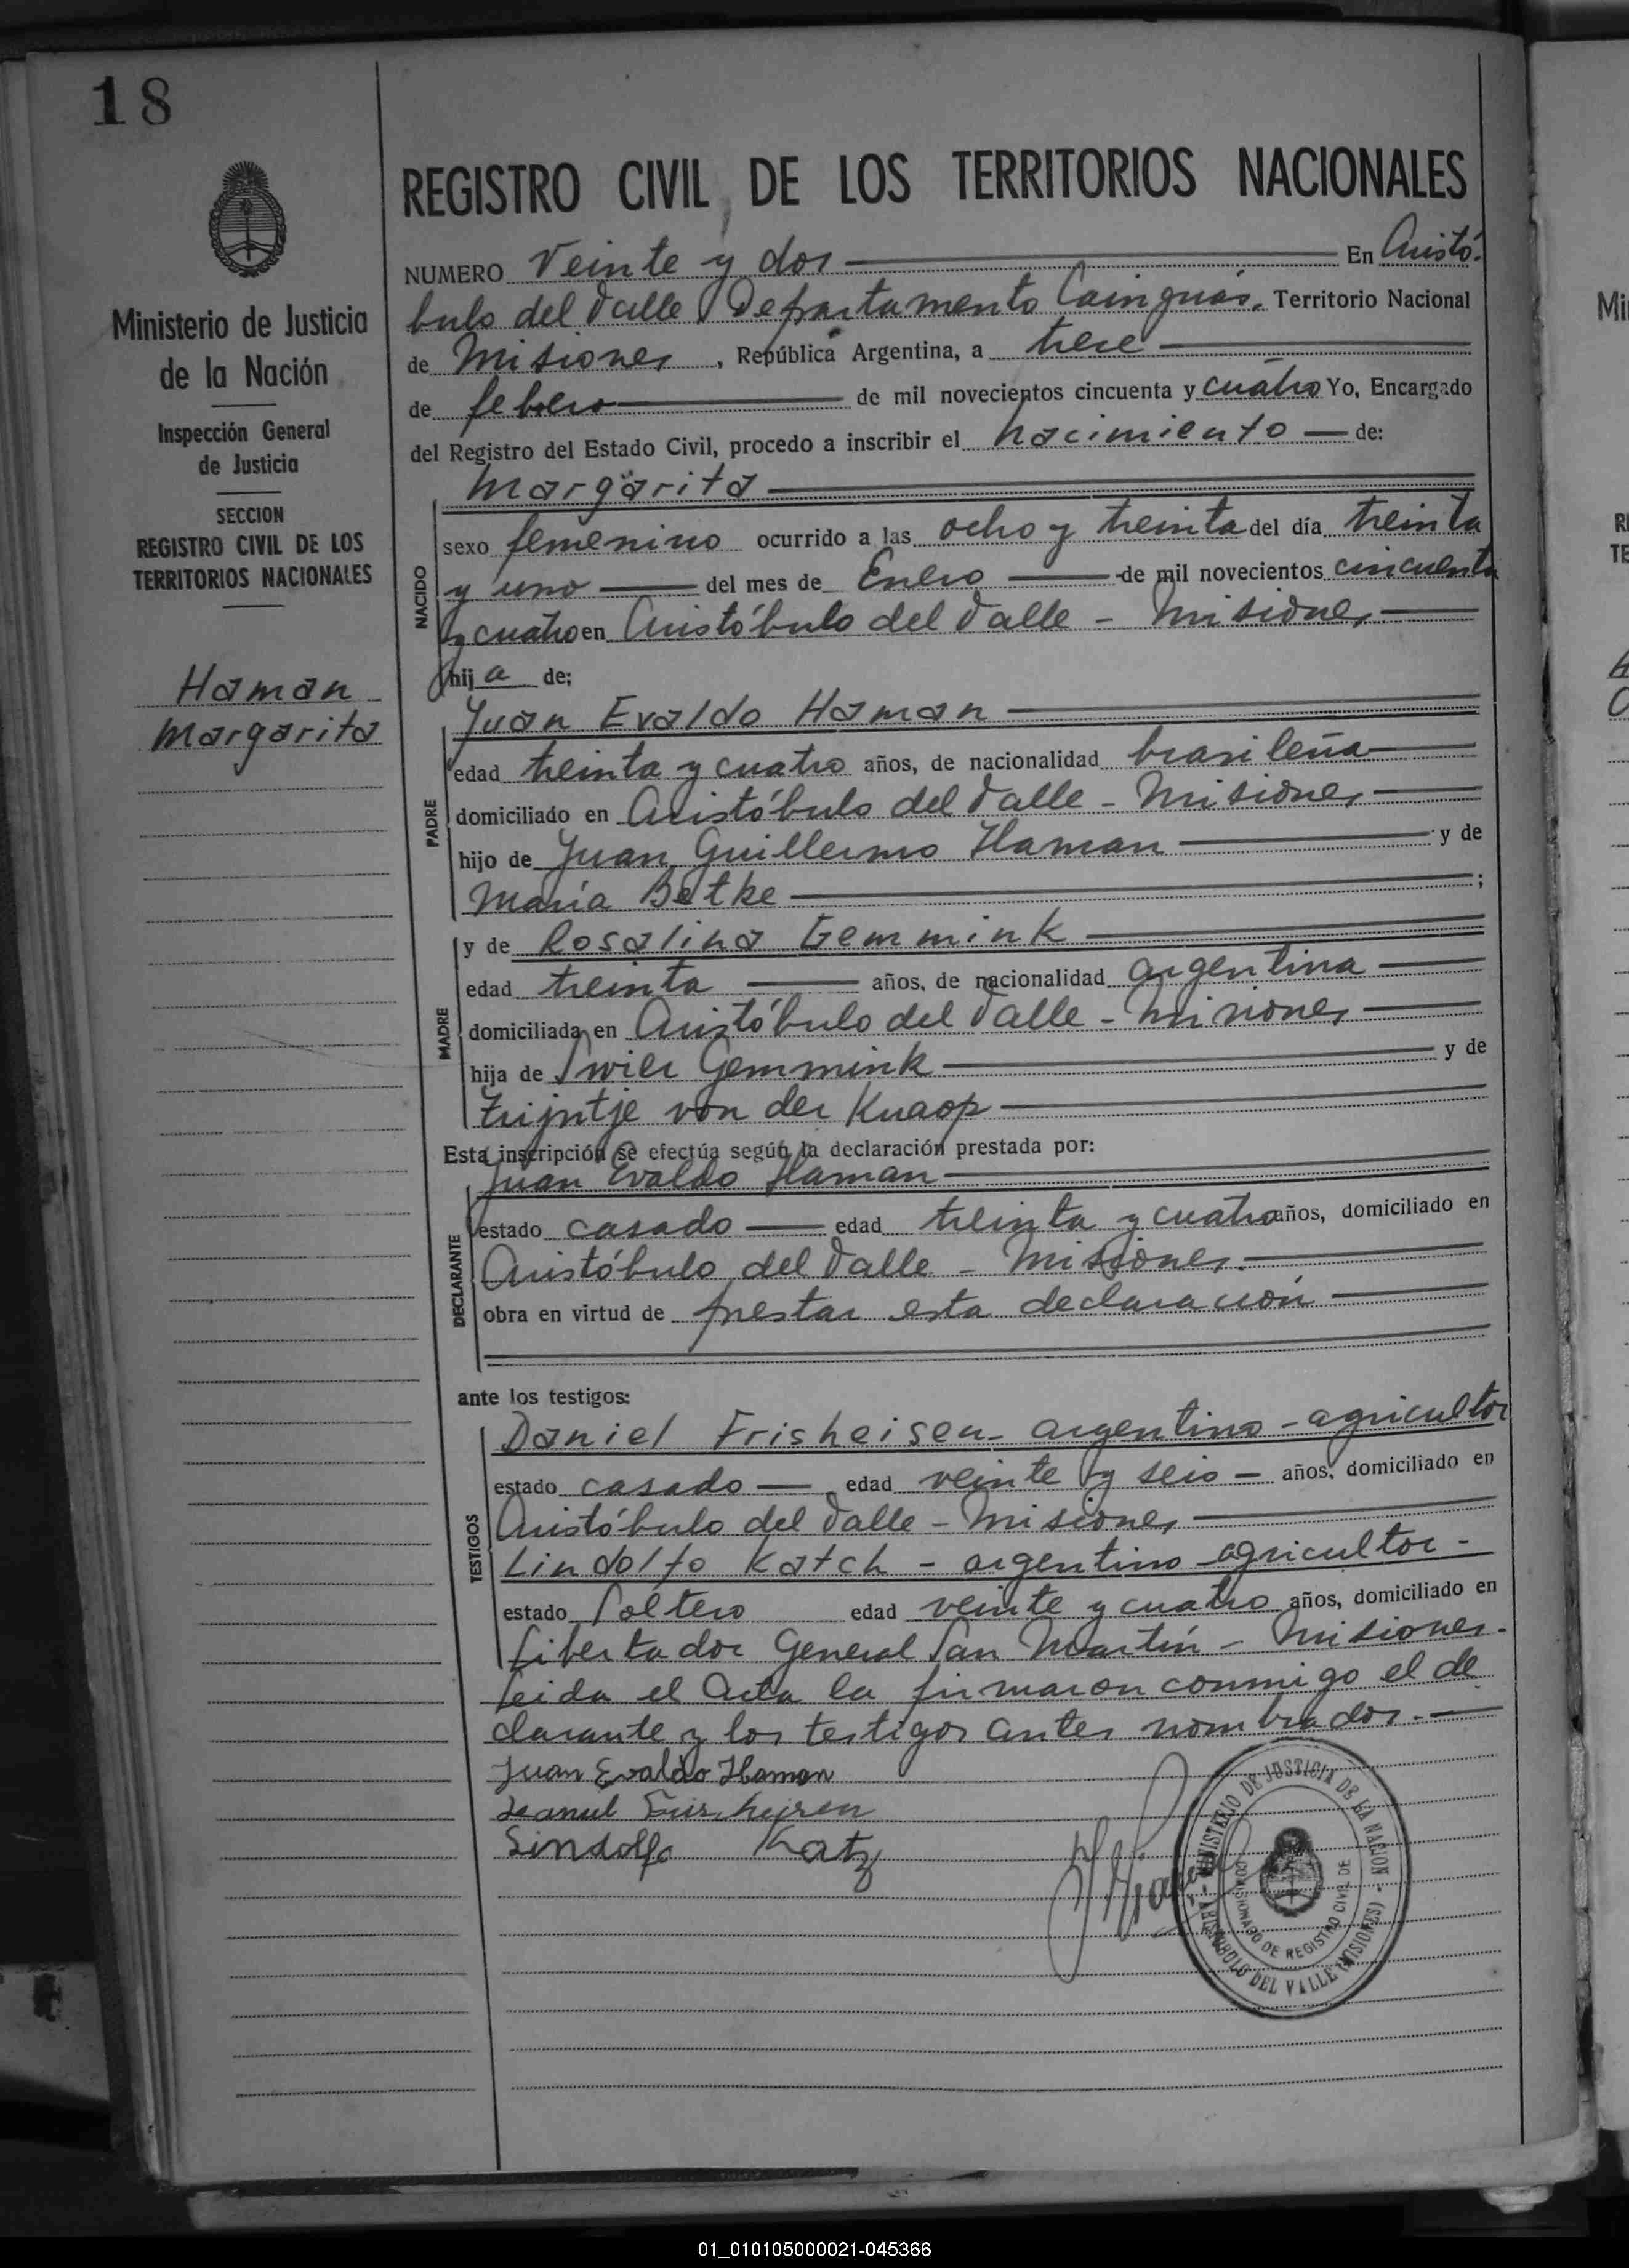 18
Ministerio de Justicia
de la Nación
Inspección General
de Justicia
SECCION
REGISTRO CIVIL DE LOS
TERRITORIOS NACIONALES
Haman
Margarita
REGISTRO CIVIL DE LOS TERRITORIOS NACIONALES
NUMERO Veinte y dos En Aristó-
bulo del Valle Departamento Cainguás, Territorio Nacional
de Misiones, República Argentina, a trece
de febrero de mil novecientos cincuenta y cuatro Yo, Encargado
del Registro del Estado Civil, procedo a inscribir el nacimiento de:
Margarita
NACIDO
sexo femenino ocurrido a las ocho y treinta del día treinta
y uno del mes de Enero de mil novecientos cincuenta
y cuatro en Aristóbulo del Valle - Misiones
hija de;
Juan Evaldo Haman
PADRE
edad treinta y cuatro años, de nacionalidad brasileña
domiciliado en Aristóbulo del Valle - Misiones
hijo de Juan Guillermo Haman y de
María Betke ;
MADRE
y de Rosalina Gemmink
edad treinta años, de nacionalidad argentina
domiciliada en Aristóbulo del Valle - Misiones
hija de Swier Gemmink y de
Trijntje von der Knaop
Esta inscripción se efectúa según la declaración prestada por:
Juan Evaldo Haman
DECLARANTE
estado casado edad treinta y cuatro años, domiciliado en
Aristóbulo del Valle - Misiones.
obra en virtud de prestar esta declaración
ante los testigos:
TESTIGOS
Daniel Frisheisen - argentino - agricultor
estado casado edad veinte y seis - años, domiciliado en
Aristóbulo del Valle - Misiones
Lindolfo Katch - argentino - agricultor -
estado soltero edad veinte y cuatro años, domiciliado en
Libertador General San Martín - Misiones.
Leida el Acta la firmaron conmigo el de
clarante y los testigos antes nombrados.-
Juan Evaldo Haman
Lindolfo Katz
MINISTERIO DE JUSTICIA DE LA NACION
COMISIONADO DE REGISTRO CIVIL DE
ARISTOBULO DEL VALLE (MISIONES)
01_010105000021-045366